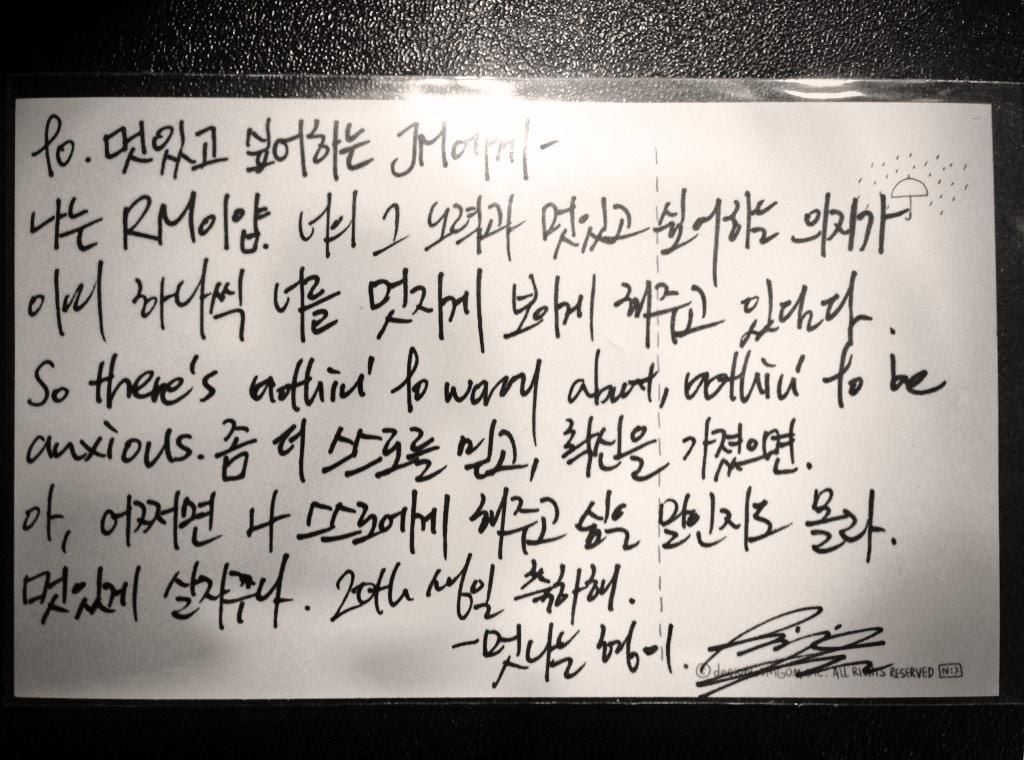 To. 멋있고 싶어하는 JM에게-
나는 RM이얌. 너의 그 노력과 멋있고 싶어하는 의지가
이미 하나씩 너를 멋지게 보이게 해주고 있단다.
So there's nothin' to worry about, nothin' to be
anxious. 좀 더 스스로를 믿고, 확신을 가졌으면.
아, 어쩌면 나 스스로에게 해주고 싶은 말인지도 몰라.
멋있게 살자꾸나. 20th 생일 축하해.
-멋나는 형이.
ALL RIGHTS RESERVED